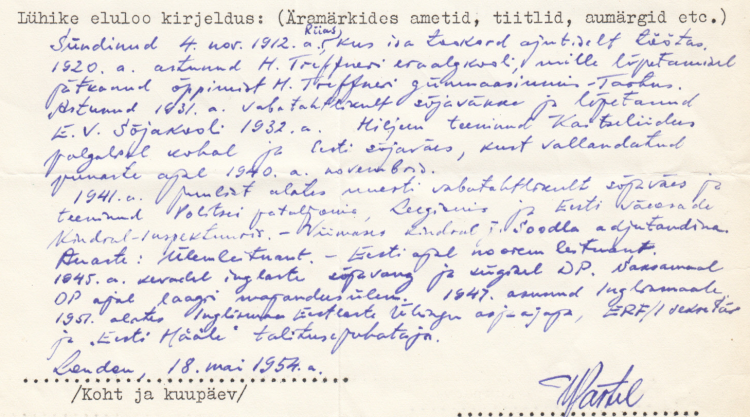 Lühike eluloo kirjeldus: (Äramärkides ametid, tiitlid, aumärgid etc.)
Riias
Sündinud 4. nov. 1912.a. kus isa teekord ajutiselt töötas.
1920. a. astunud H. Treffneri eraalgkooli, mille lõpetamisel
jätkanud õppimist H. Treffneri gümnaasiumis - Tartus.
Astunud 1931. a. vabatahtlikult sõjaväkke ja lõpetanud
E. V. Sõjakooli 1932. a. Hiljem teeninud Kaitseliidus
palgalisel kohal ja Eesti sõjaväes, kust vallandatud
punaste ajal 1940. a. novembris.
1941. a. juulist alates uuesti vabatahtlikult sõjaväes ja
teeninud Politsei pataljonis, Leegionis ja Eesti Väeosade
Kindral-Inspektuuris. - Viimases kindral J. Soodla adjutandina.
Auaste: Ülemleitnant. - Eesti ajal noorem leitnant.
1945. a. kevadel inglaste sõjavang ja sügisel DP. Saksamaal
DP ajal laagri majandusülem. 1947. asunud Inglismaale
1951. alates Inglismaa Eestlaste Ühingu asjaajaja, ERF/I sekretär
ja "Eesti Hääle" talitusejuhataja.
London, 18. mai 1954. a.
/Koht ja kuupäev/